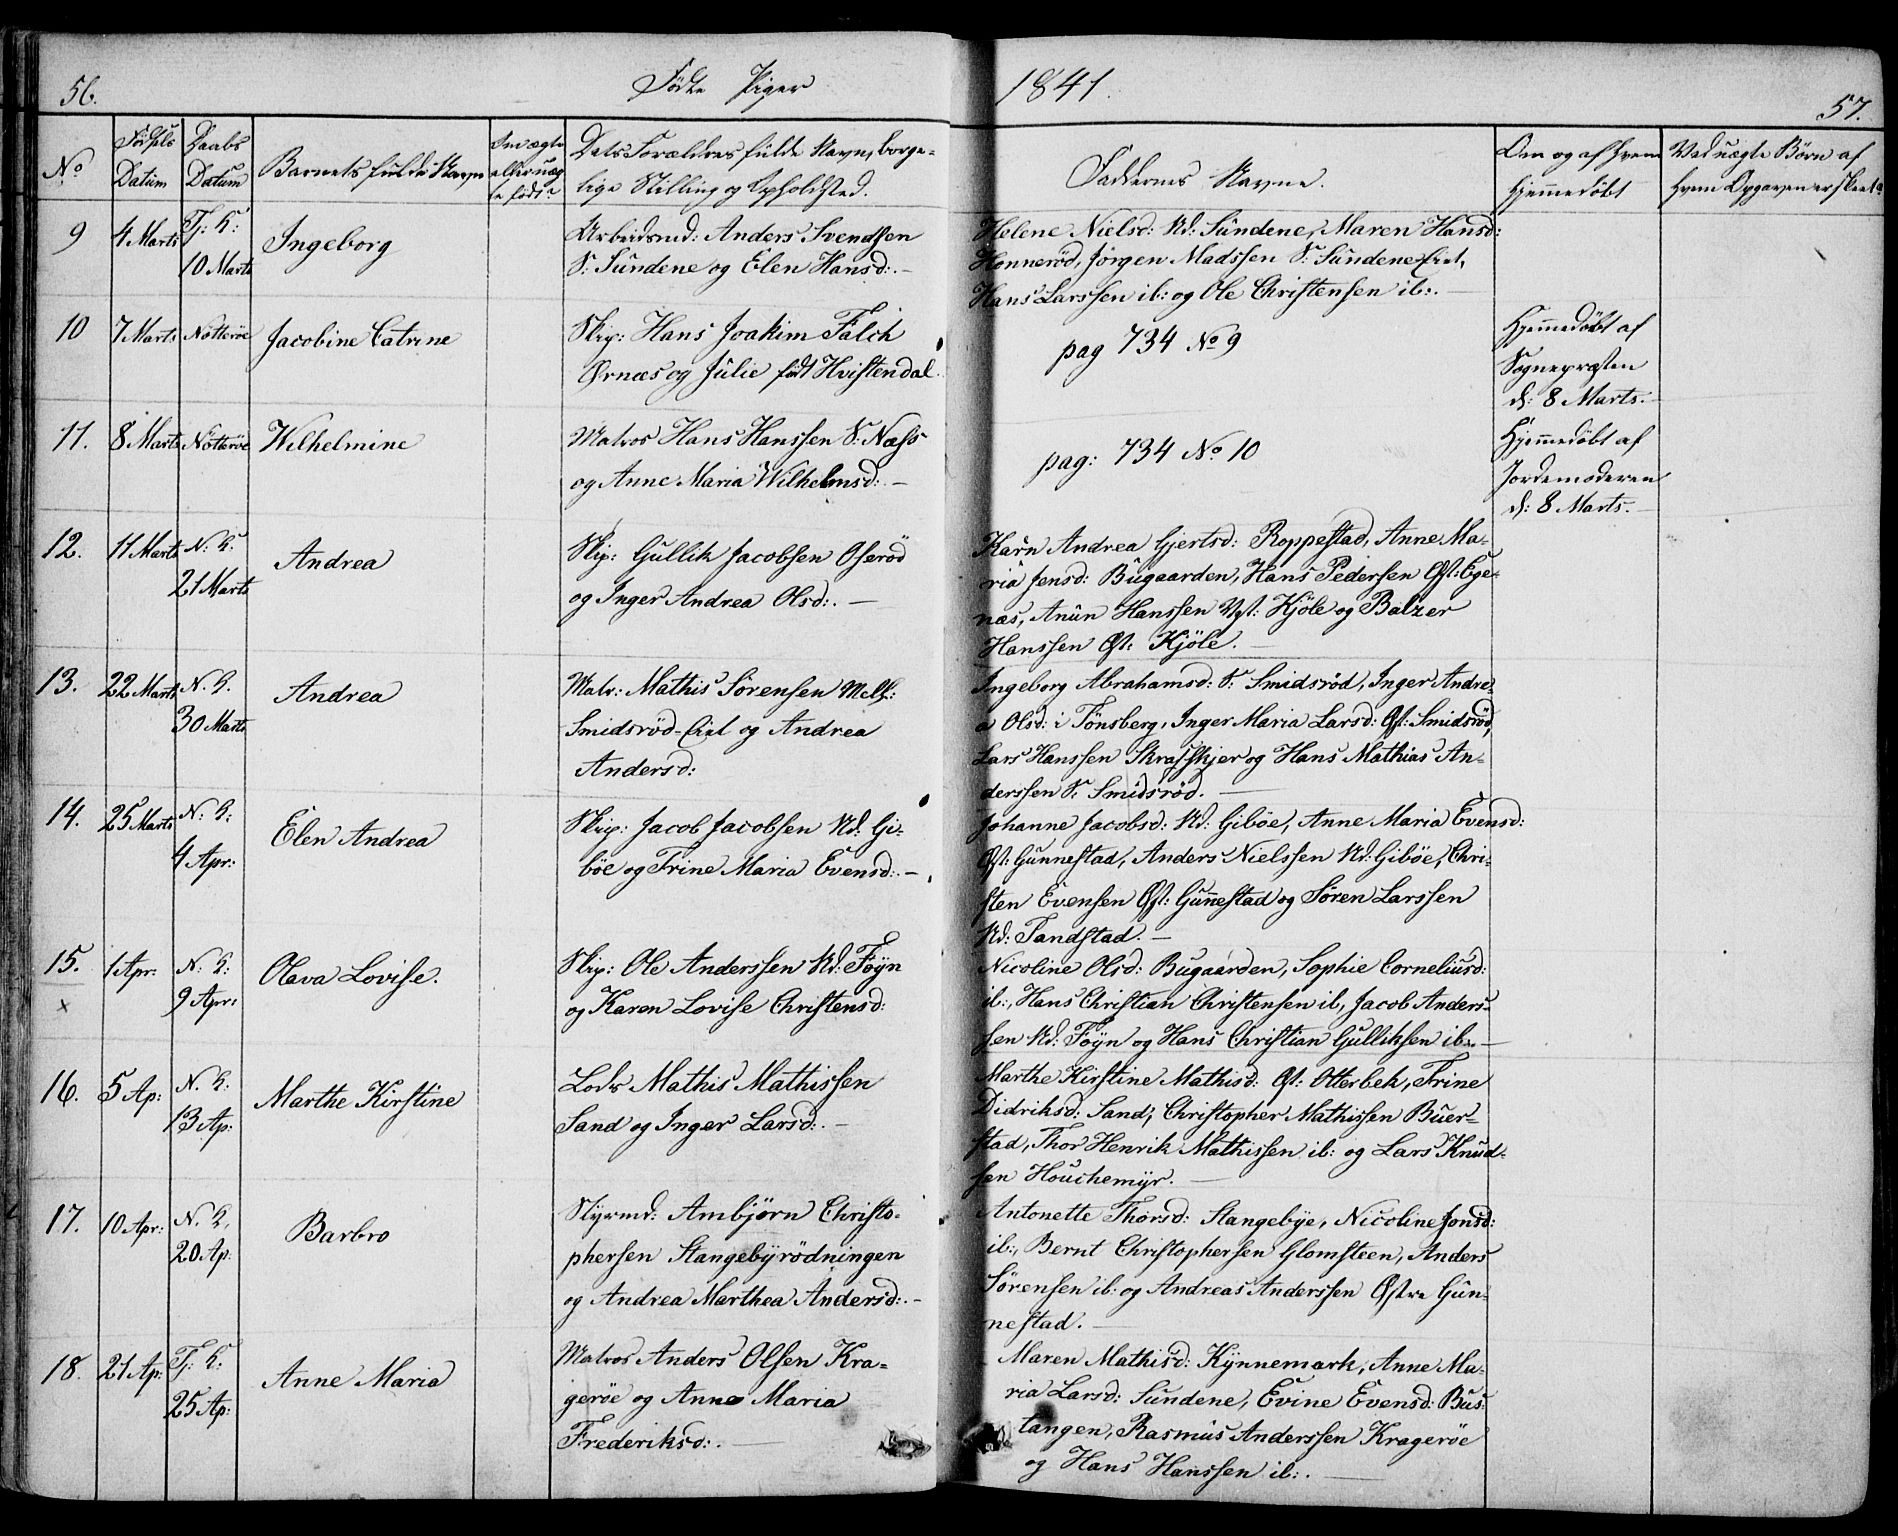 56.
Fødte Piger
1841.
57.
No
Fødsels Datum
Daabs Datum
Barnets fulde Navn
Om ægte eller uæg te født
Dets Forældres fulde Navn, borge-
lige Stilling og Opholdsted.
Faddernes Navne.
Om og af hvem
hjemmedøbt
Ved uægte Børn af
hvem Opgaven er skeet
9
4 Marts
Tj: K:
10 Marts
Ingeborg
Arbeidsmd: Anders Svendsen
S: Sundene og Elen Hansd:. -
Helene Nielsd: Nd: Sundene, Maren Hansd:
Honnerød, Jørgen Madssen S: Sundene-Eiet,
Hans Larssen ib: og Ole Christensen ib:. -
10
7 Marts
Nøtterøe
Jacobine Catrine
Skip: Hans Joakim Falch
Ørnæs og Julie født Hvistendal.
pag 734 No 9
Hjemmedøbt af
Sognepræsten
d: 8 Marts. -
11.
8 Marts
Nøtterøe
Wilhelmine
Matros Hans Hanssen S: Næss
og Anne Maria Wilhelmsd:. -
pag: 734 No 10
Hjemmedøbt af
Jordemoderen
d: 8 Marts. -
12.
11 Marts
N: K:
21 Marts
Andrea
Skip: Gullik Jacobsen Oserød
og Inger Andrea Olsd:. -
Karn Andrea Gjertsd: Roppestad, Anne Ma-
ria Jensd: Bugaarden, Hans Pedersen Øst: Ege-
næs, Anun Hanssen Vest: Kjøle og Balzer
Hanssen Øst: Kjøle. -
13.
22 Marts
N. K.
30 Marts
Andrea
Matr: Mathis Sørensen Mell:
Smidsrød-Eiet og Andrea
Andersd:
Ingeborg Abrahamsd: S: Smidsrød, Inger Andre-
a Olsd: i Tønsberg, Inger Maria Larsd: Øst: Smidsrød,
Lars Hanssen Skraskjer og Hans Mathias An-
derssen S: Smidsrød. -
14.
25 Marts
N: K:
4 Apr:
Elen Andrea
Skip: Jacob Jacobsen Nd: Gi-
bøe og Trine Maria Evensd:. -
Johanne Jacobsd: Nd: Gibøe, Anne Maria Evensd:
Øst: Gunnestad, Anders Nielssen Nd: Gibøe, Chri-
sten Evensen Øst: Gunnestad og Søren Larssen
Nd: Tandstad. -
15.
x
1 Apr:
N: K:
9 Apr:
Olava Lovise.
Skip: Ole Anderssen Nd: Føyn
og Karen Lovise Christensd:
Nicoline Olsd: Bugaarden, Sophie Corneliusd:
ib:, Hans Christian Christensen ib, Jacob Anders-
sen Nd: Føyn og Hans Christian Gulliksen ib:. -
16.
5 Ap:
N. K:
13 Ap:
Marthe Kirstine
Lods Mathis Mathissen
Sand og Inger Larsd:. -
Marthe Kirstine Mathisd: Øst: Otterbek, Trine
Didriksd: Sand, Christopher Mathissen Buer-
stad, Thor Henrik Mathissen ib: og Lars Knud-
sen Houchemyr. -
17.
10 Apr:
N. K.
20 Ap.
Barbro
Styrmd: Ambjørn Christo-
phersen Stangebyrødningen
og Andrea Marthea Andersd:. -
Antonette Thorsd: Stangebye, Nicoline Jonsd:
ib:, Bernt Christophersen Glomsteen, Anders
Sørensen ib: og Andreas Anderssen Østre Gun-
nestad. -
18.
21 Ap:
Tj: K:
25 Ap:
Anne Maria
Matros Anders Olsen Kra-
gerøe og Anne Maria
Frederiksd:. -
Maren Mathisd: Kynnemark, Anne Ma-
ria Larsd: Sundene, Evine Evensd: Bus-
tangen, Rasmus Anderssen Kragerøe
og Hans Hanssen ib:. -